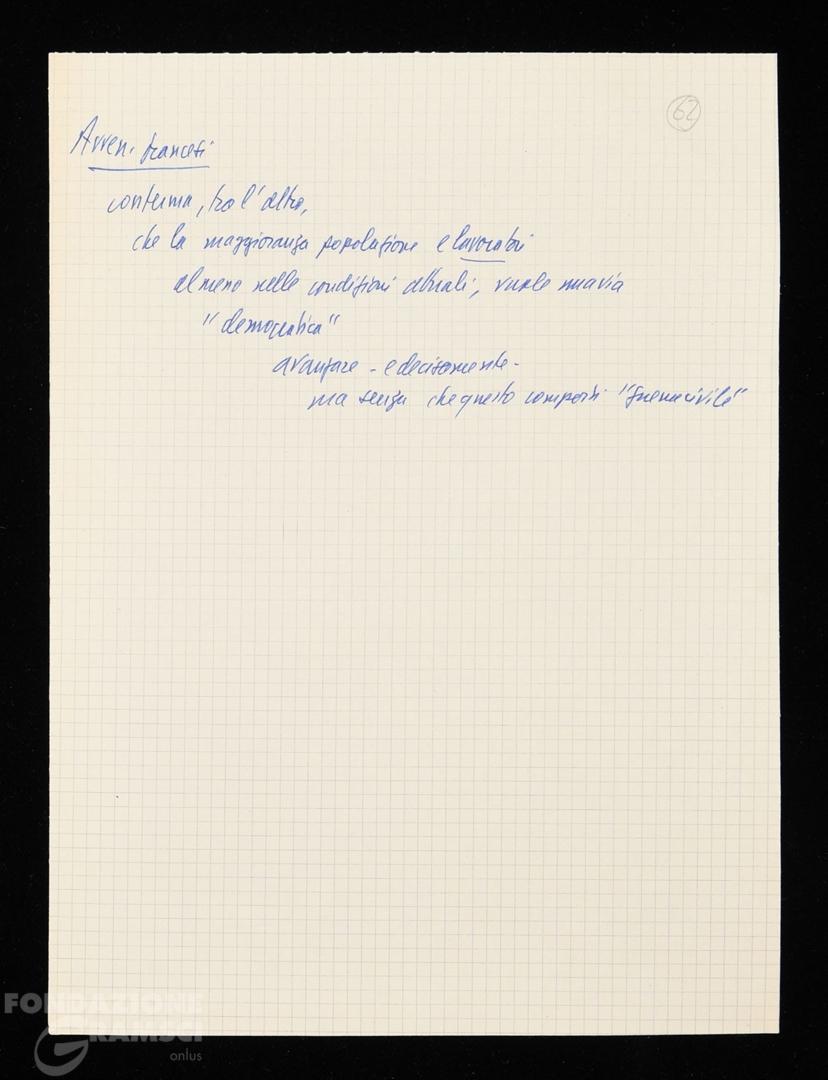 62
Avven. francesi
conferma, tra l'altro,
che la maggioranza popolazione e lavoratori
almeno nelle condizioni attuali, vuole una via
"democratica"
avanzare - e decisamente -
ma senza che questo comporti "guerra civile"
FONDAZIONE
GRAMSCI
onlus